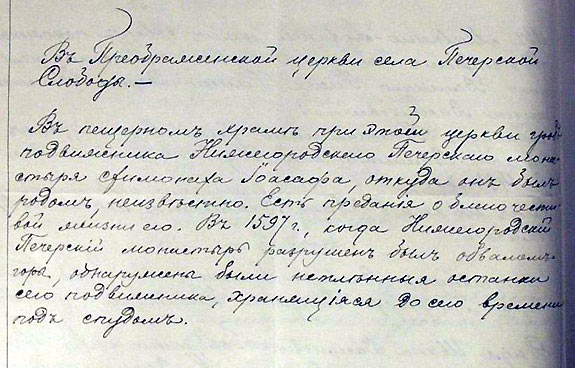 Въ Преображенской церкви села Печерской
Слободы.—
Въ пещерномъ храмѣ при этой церкви гробъ
подвижника Нижегородскаго Печерскаго мона-
стыря схимонаха Іоасафа, откуда онъ былъ
родомъ, неизвѣстно. Есть преданія о благочести-
вой жизни его. Въ 1597 г., когда Нижегородскій
Печерскій монастырь разрушенъ былъ обваломъ
горы, обнаружены были нетлѣнныя останки
сего подвижника, хранящіяся до сего времени
подъ спудомъ.